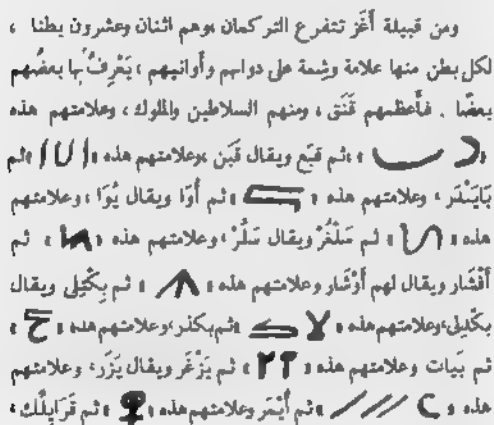 ومن قبيلة أغز تتفرع التركمان وهم اثنان وعشرون بطنا ،
لكل بطن منها علامة وشمة على دوابهم وأوانيهم ، يَعْرِفُ بها بعضُهم
بعضًا . فأعظمهم قَنَق ، ومنهم السلاطين والملوك ، وعلامتهم هذه
، ثم قَبَع ويقال قَبَن ، وعلامتهم هذه ثم
بَايَنْدَر ، وعلامتهم هذه ثم أوَا ويقال يُوَا ، وعلامتهم
هذه ثم سَلْغُرْ ويقال سَلُرْ ، وعلامتهم هذه ثم
أفْشَار ويقال لهم أوْشَار وعلامتهم هذه ثم بِكْتِلى ويقال
بكْدِلى ، وعلامتهم هذه ثم بكدز ، وعلامتهم هذه
ثم بَيات وعلامتهم هذه ثم يَزْغَر ويقال يَزَر ، وعلامتهم
هذه ثم أَيْمَر وعلامتهم هذه ثم قَرَابُلُك ،